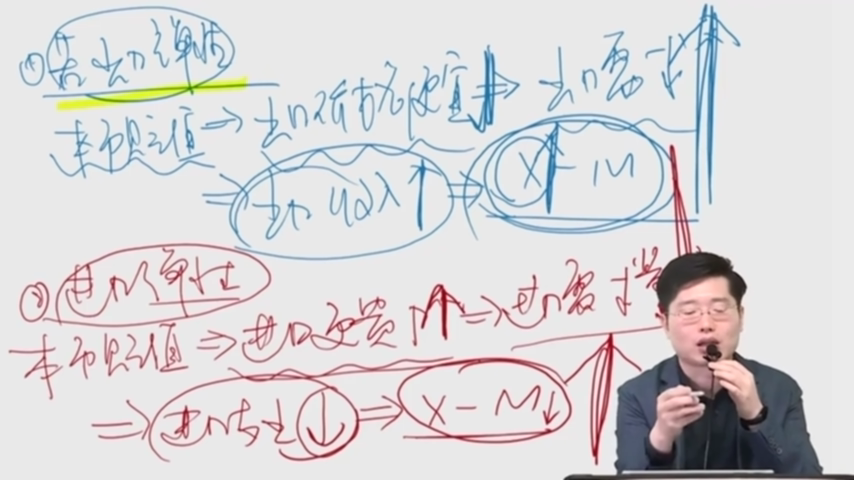 ① 若出口弹性
本币贬值 ⇒ 出口价格便宜 ⇒ 出口需求
⇒ 出口收入↑ ⇒ X - M
② 进口弹性
本币贬值 ⇒ 进口更贵 ↑ ⇒ 进口需求
⇒ 进口支出 ↓ ⇒ X - M↓